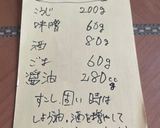 みそ 200g
味噌 60g
酒 80g
ごま 60g
醤油 280cc
すこし固い時は
しょう油、酒を増やして